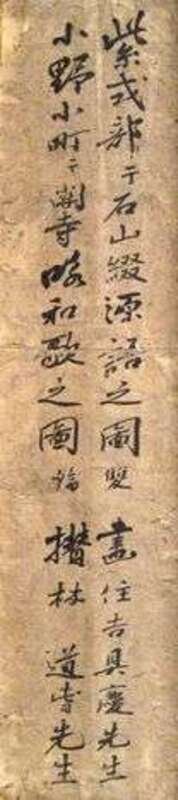 紫式部于石山綴源語之圖 雙 畫 住吉具慶先生
小野小町于関寺咏和歌之圖 幅 攅 林 道春先生